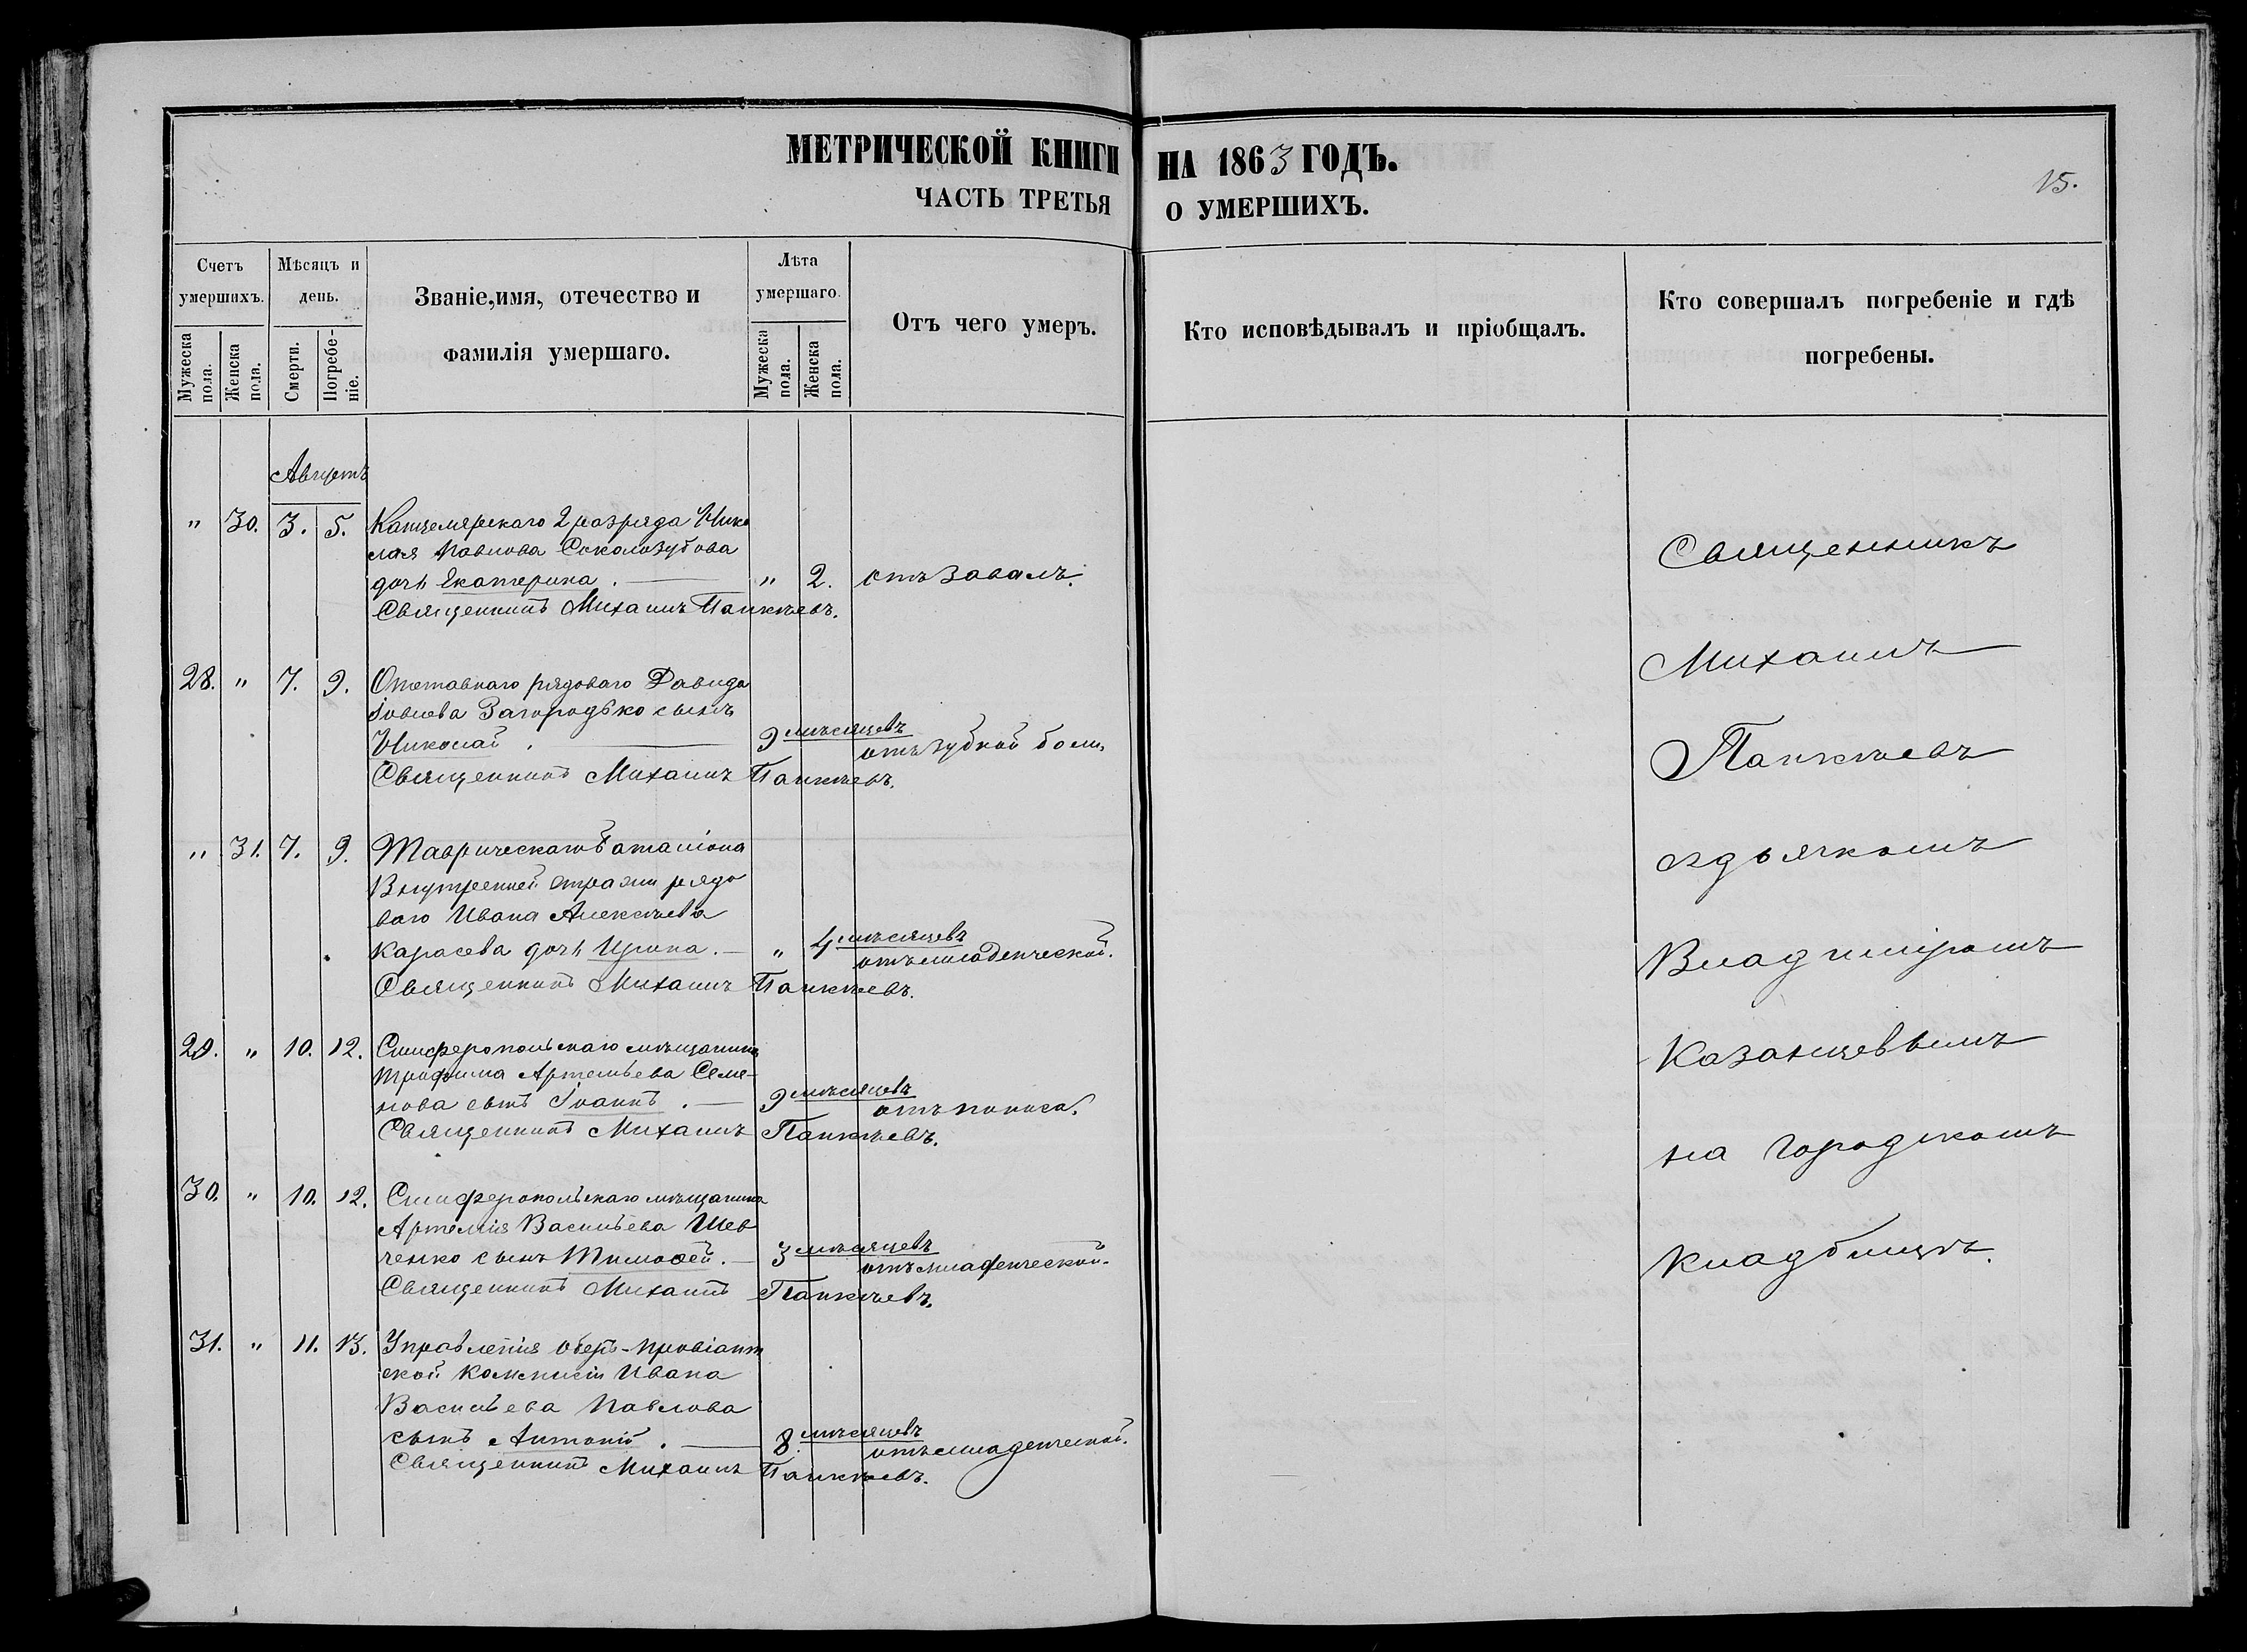 МЕТРИЧЕСКОЙ КНИГИ НА 1863 ГОДЪ.
15.
ЧАСТЬ ТРЕТЬЯ О УМЕРШИХЪ.
Счетъ умершихъ.
Мужеска пола.
Женска пола.
Мѣсяцъ и день.
Смерти.
Погребеніе.
Званіе, имя, отечество и
фамилія умершаго.
Лѣта умершаго.
Мужеска пола.
Женска пола.
Отъ чего умеръ.
Кто исповѣдывалъ и пріобщалъ.
Кто совершалъ погребеніе и гдѣ
погребены.
Августъ
" 30. 3. 5. Канцелярскаго 2 разряда Нико
лая Павлова Скалозубова
дочь Екатерина. — " 2. отъ завалъ.
Священникъ Михаилъ Панкѣевъ.
28. " 7. 9. Отставнаго рядоваго Давида
Іовлева Загородько сынъ
Николай. — 9 мѣсяцевъ отъ зубной боли
Священникъ Михаилъ Панкѣевъ.
" 31. 7. 9. Таврическаго баталіона
Внутренней стражи рядо
ваго Ивана Алексѣева
Карасева дочь Ирина. — " 4 мѣсяцевъ отъ младенческой.
Священникъ Михаилъ Панкѣевъ.
29. " 10. 12. Симферопольскаго мѣщанина
Трофима Артемьева Семе-
нова сынъ Іоаннъ. — 9 мѣсяцевъ отъ поноса.
Священникъ Михаилъ Панкѣевъ.
30. " 10. 12. Симферопольскаго мѣщанина
Артемія Васильева Шев
ченко сынъ Тимоѳей. — 3 мѣсяцевъ отъ младенческой.
Священникъ Михаилъ Панкѣевъ.
31. " 11. 13. Управленія Оберъ-провіант
ской Коммисіи Ивана
Васильева Павлова
сынъ Антоній. — 8 мѣсяцевъ отъ младенческой.
Священникъ Михаилъ Панкѣевъ.
Священникъ
Михаилъ
Панкѣевъ
съ дьячкомъ
Владиміромъ
Казанцевымъ
на городскомъ
кладбищѣ.